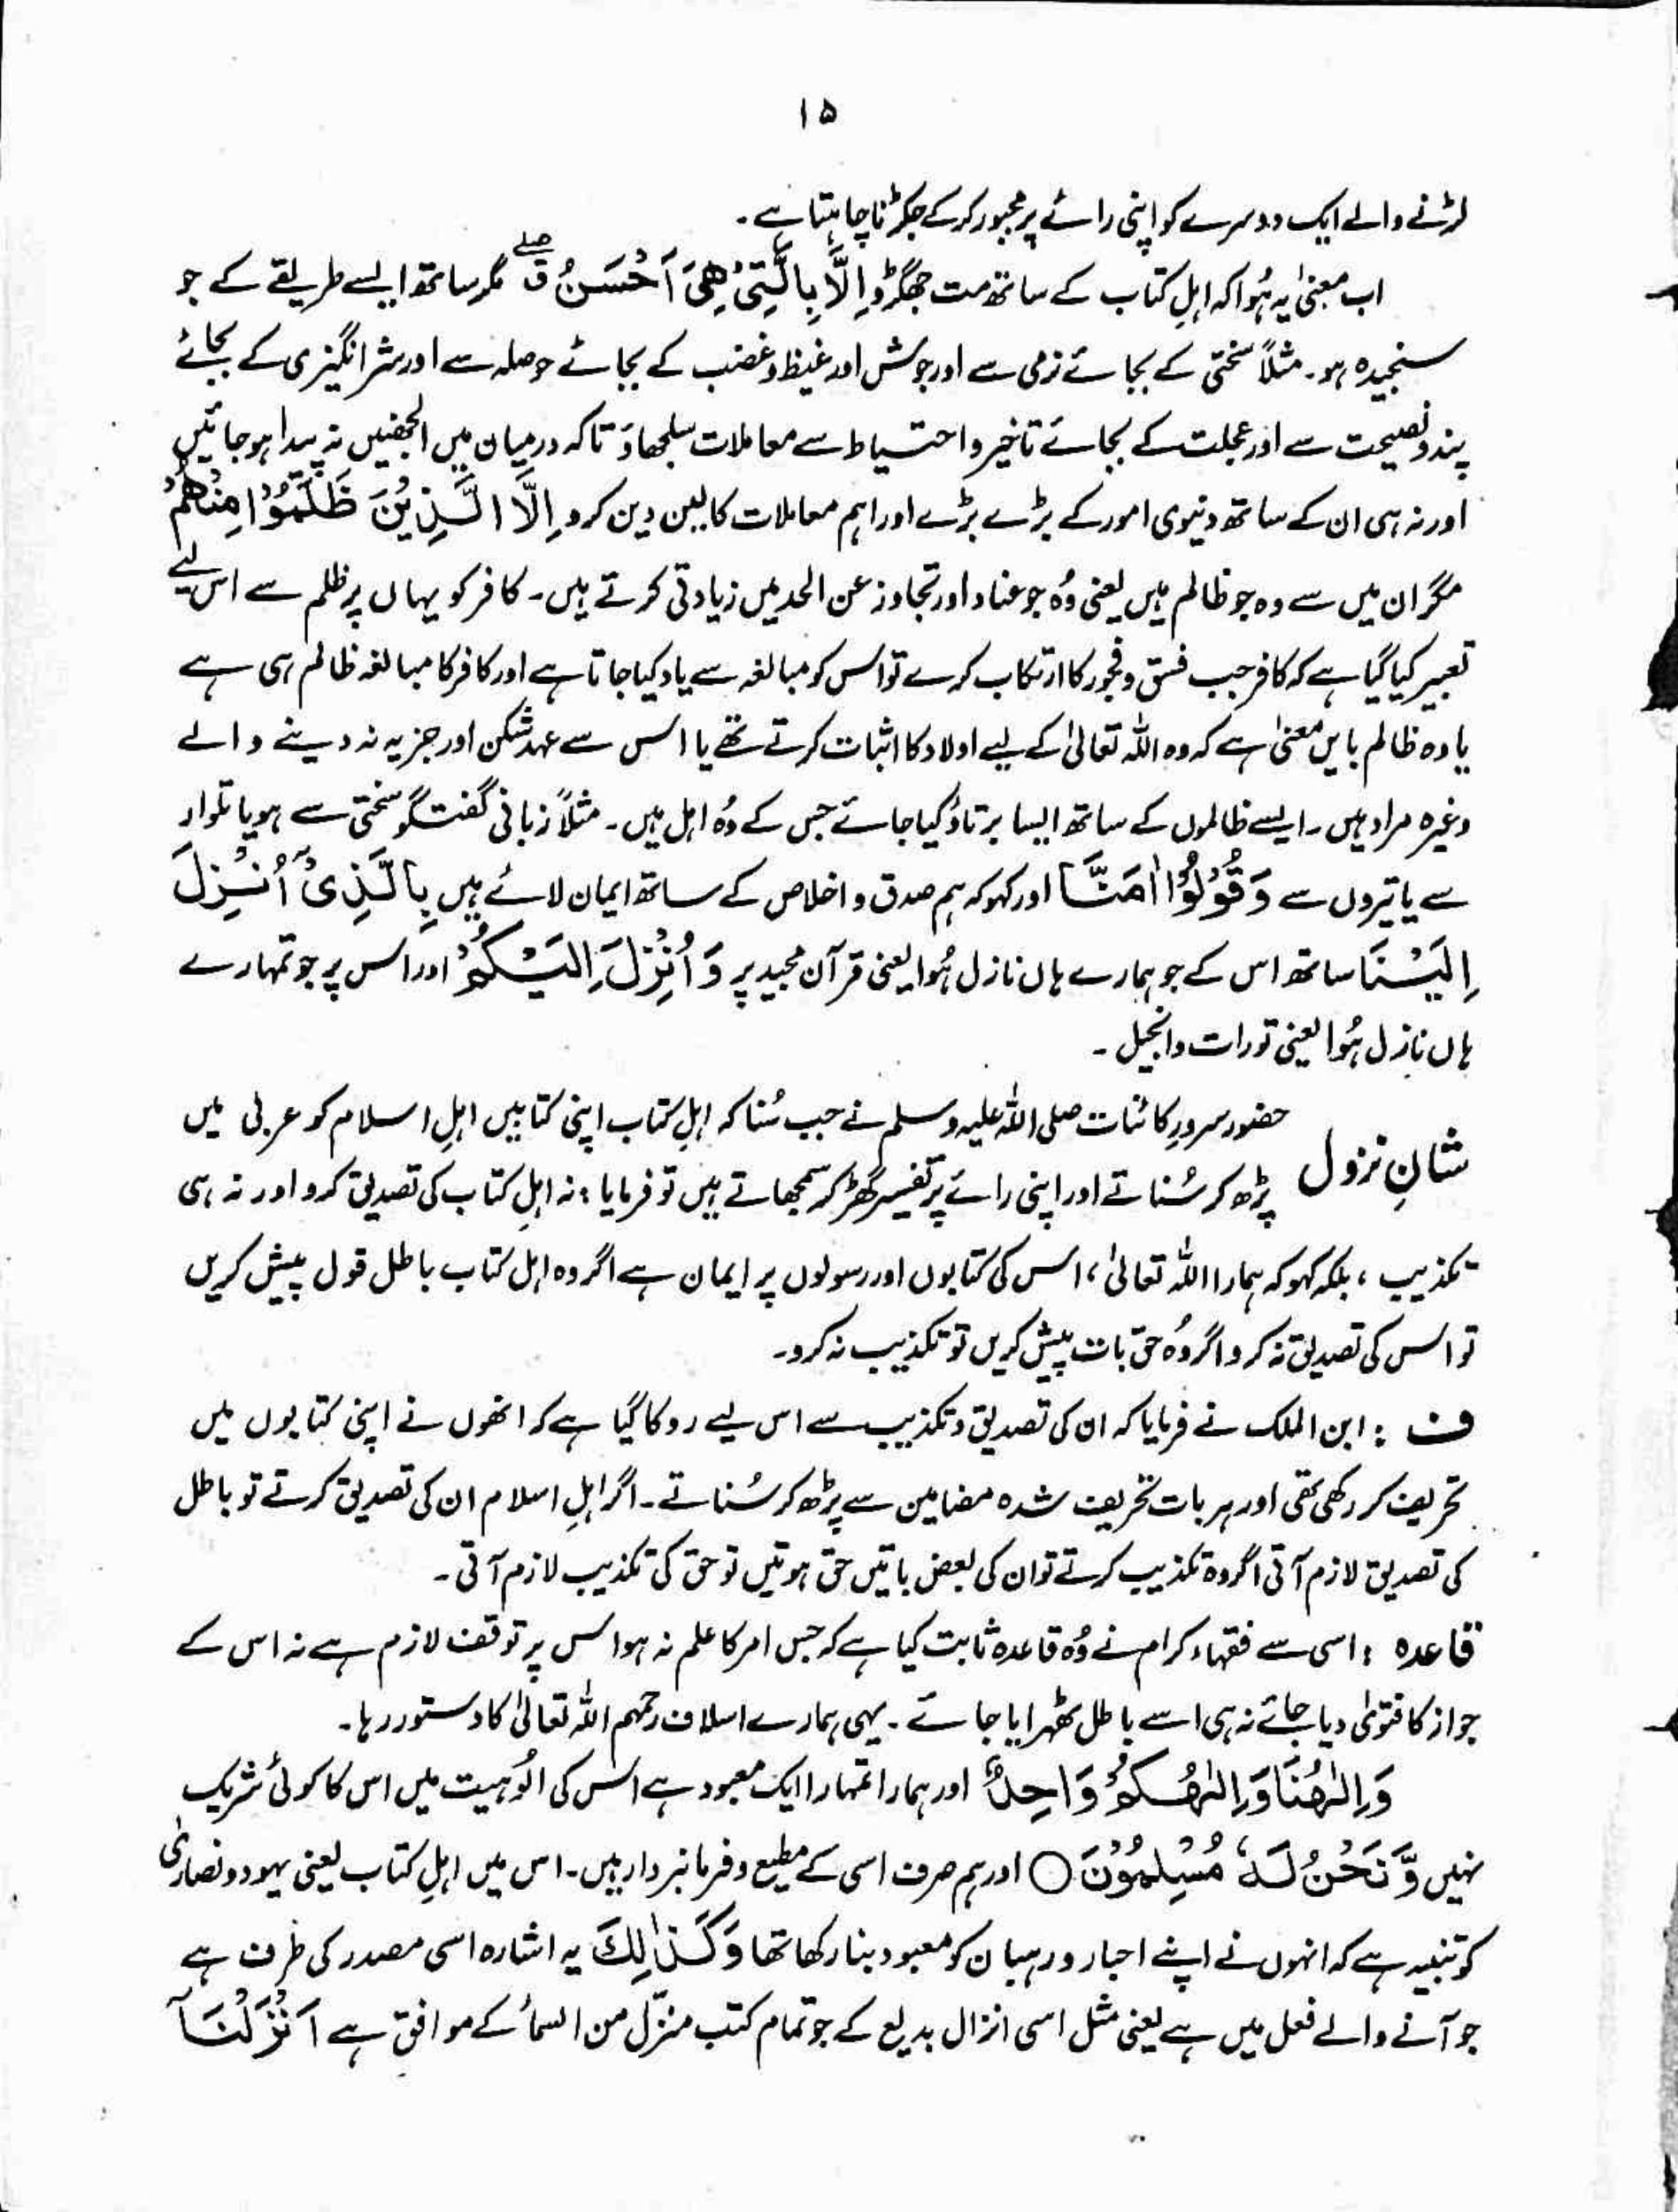 ۱۵
لڑنے والے ایک دوسرے کو اپنی رائے پر مجبور کرکے جکڑنا چاہتا ہے۔
اب معنیٰ یہ ہُوا کہ اہلِ کتاب کے ساتھ مت جھگڑو اِلَّا بِالَّتِیْ هِیَ اَحْسَنُ ق صلے مگر ساتھ ایسے طریقے کے جو
سنجیدہ ہو۔ مثلاً سختی کے بجائے نرمی سے اور جوش اور غیظ و غضب کے بجائے حوصلہ سے اور شر انگیزی کے بجائے
پند و نصیحت سے اور عجلت کے بجائے تاخیر و احتیاط سے معاملات سلجھاؤ تاکہ درمیان میں الجھنیں نہ پیدا ہوجائیں
اور نہ ہی ان کے ساتھ دنیوی امور کے بڑے بڑے اور اہم معاملات کا لین دین کرو اِلَّا الَّذِیْنَ ظَلَمُوْا مِنْهُمْ
مگر ان میں سے وہ جو ظالم ہیں یعنی وُہ جو عناد اور تجاوز عن الحد میں زیادتی کرتے ہیں۔ کافر کو یہاں پر ظلم سے اس لیے
تعبیر کیا گیا ہے کہ کافر جب فسق و فجور کا ارتکاب کرے تو اس کو مبالغہ سے یاد کیا جاتا ہے اور کافر کا مبالغہ ظالم ہی ہے
یا وہ ظالم بایں معنیٰ ہے کہ وہ اللہ تعالیٰ کے لیے اولاد کا اثبات کرتے تھے یا اس سے عہد شکن اور جزیہ نہ دینے والے
وغیرہ مراد ہیں۔ ایسے ظالموں کے ساتھ ایسا برتاؤ کیا جائے جس کے وُہ اہل ہیں۔ مثلاً زبانی گفتگو سختی سے ہو یا تلوار
سے یا تیروں سے وَقُوْلُوْٓا اٰمَنَّا اور کہو کہ ہم صدق و اخلاص کے ساتھ ایمان لائے ہیں بِالَّذِیْٓ اُنْزِلَ
اِلَیْنَا ساتھ اس کے جو ہمارے ہاں نازل ہُوا یعنی قرآن مجید پر وَ اُنْزِلَ اِلَیْکُمْ اور اس پر جو تمہارے
ہاں نازل ہُوا یعنی تورات و انجیل۔
شانِ نزول حضور سرورِ کائنات صلی اللہ علیہ وسلم نے جب سُنا کہ اہلِ کتاب اپنی کتابیں اہلِ اسلام کو عربی میں
پڑھ کر سُناتے اور اپنی رائے پر تفسیر گھڑ کر سمجھاتے ہیں تو فرمایا: نہ اہلِ کتاب کی تصدیق کرو اور نہ ہی
تکذیب، بلکہ کہو کہ ہمارا اللہ تعالیٰ، اس کی کتابوں اور رسولوں پر ایمان ہے اگر وہ اہل کتاب باطل قول پیش کریں
تو اس کی تصدیق نہ کرو اگر وُہ حق بات پیش کریں تو تکذیب نہ کرو۔
ف : ابن الملک نے فرمایا کہ ان کی تصدیق و تکذیب سے اس لیے روکا گیا ہے کہ انھوں نے اپنی کتابوں میں
تحریف کر رکھی تھی اور ہر بات تحریف شدہ مضامین سے پڑھ کر سُناتے۔ اگر اہلِ اسلام ان کی تصدیق کرتے تو باطل
کی تصدیق لازم آتی اگر وہ تکذیب کرتے تو ان کی بعض باتیں حق ہوتیں تو حق کی تکذیب لازم آتی۔
قاعدہ : اسی سے فقہاء کرام نے وُہ قاعدہ ثابت کیا ہے کہ جس امر کا علم نہ ہو اس پر توقف لازم ہے نہ اس کے
جواز کا فتویٰ دیا جائے نہ ہی اسے باطل ٹھہرایا جائے۔ یہی ہمارے اسلاف رحمہم اللہ تعالیٰ کا دستور رہا۔
وَ اِلٰهُنَا وَ اِلٰهُکُمْ وَاحِدٌ اور ہمارا تمہارا ایک معبود ہے اس کی الُوہیت میں اس کا کوئی شریک
نہیں وَّ نَحْنُ لَهٗ مُسْلِمُوْنَ ○ اور ہم صرف اسی کے مطیع و فرمانبردار ہیں۔ اس میں اہلِ کتاب یعنی یہود و نصاریٰ
کو تنبیہ ہے کہ انہوں نے اپنے احبار و رہبان کو معبود بنا رکھا تھا وَکَذٰلِكَ یہ اشارہ اسی مصدر کی طرف ہے
جو آنے والے فعل میں ہے یعنی مثل اسی انزال بدیع کے جو تمام کتب منزّل من السماُ کے موافق ہے اَنْزَلْنَآ